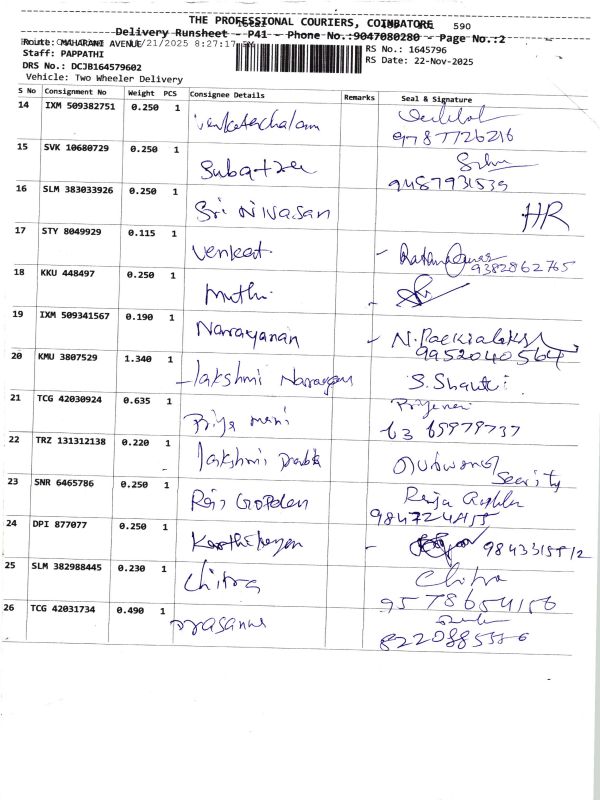 THE PROFESSIONAL COURIERS, COIMBATORE 590
Delivery Runsheet - P41 - Phone No.:9047080280 - Page No.:2
Route: MAHARANI AVENUE /21/2025 8:27:17
RS No.: 1645796
Staff: PAPPATHI
RS Date: 22-Nov-2025
DRS No.: DCJB164579602
Vehicle: Two Wheeler Delivery
S No Consignment No Weight PCS Consignee Details Remarks Seal & Signature
14 IXM 509382751 0.250 1 Venkatachalam
9787726216
15 SVK 10680729 0.250 1
9487931539
16 SLM 383033926 0.250 1 Sri Nivasan HR
17 STY 8049929 0.115 1 Venkat
9382862765
18 KKU 448497 0.250 1 Muthu
19 IXM 509341567 0.190 1 Narayanan
9952040564
20 KMU 3807529 1.340 1 Lakshmi Narayan S. Shanthi
21 TCG 42030924 0.635 1 Priya mani Priyamani
63 65979737
22 TRZ 131312138 0.220 1 Lakshmi
23 SNR 6465786 0.250 1
24 DPI 877077 0.250 1 Karthikeyan
25 SLM 382988445 0.230 1 Chitra Chitra
9578654156
26 TCG 42031734 0.490 1 Prasanna